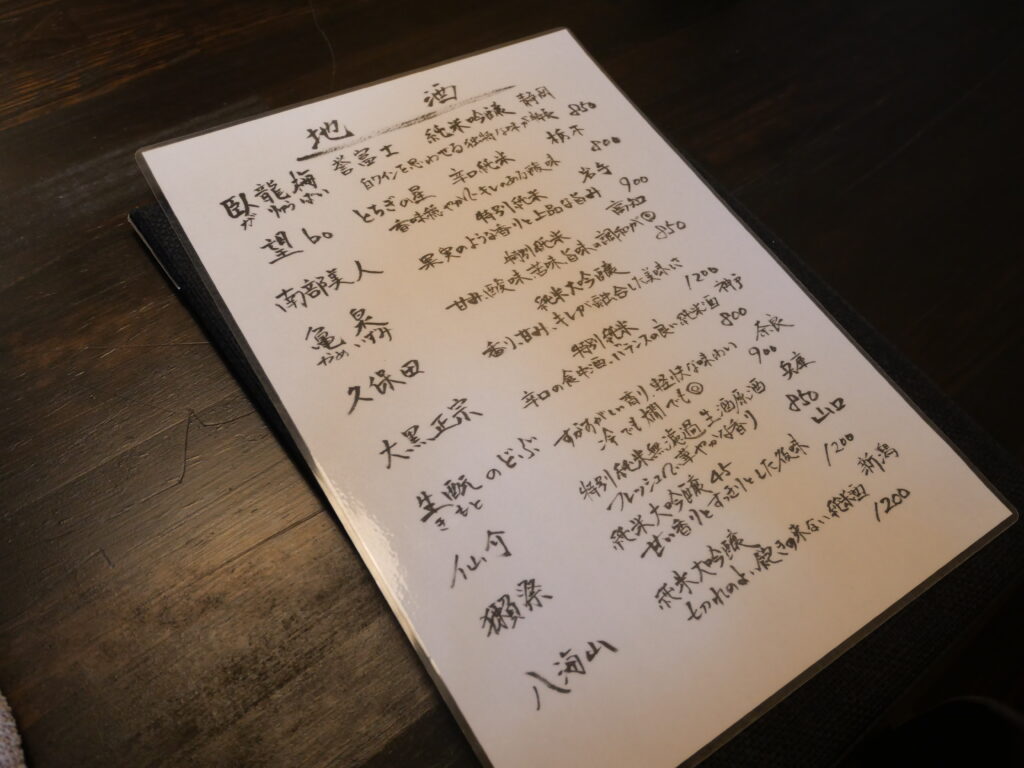 地酒
臥龍梅 誉富士 純米吟醸 静岡
がりゅうばい 白ワインを思わせる 850
望bo とちぎの星 辛口純米 栃木
香味 キレのある酸味 800
南部美人 特別純米 岩手
果実のような香りと上品な旨味 900
亀泉 特別純米 高知
かめいずみ 甘み、酸味、苦味、旨味の調和が◎ 850
久保田 純米大吟醸
香り、甘味、キレが融合した美味しさ 1200
大黒正宗 特別純米 神戸
辛口の食中酒、バランスの良い純米酒 800
生酛のどぶ すがすがしい香り、軽快な味わい 奈良
きもと 冷でも燗でも◎ 900
仙介 特別純米無濾過生酒原酒 兵庫
フレッシュで華やかな香り 850
獺祭 純米大吟醸45 山口
甘い香りと とした後味 1200
八海山 純米大吟醸 新潟
キレのよい飽きの来ない純米酒 1200